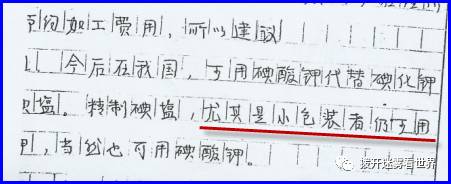 节约加工费用，所以建议
。今后在我国，可用碘酸钾代替碘化钾
盐。精制碘盐，尤其是小包装者仍可用
，当然也可用碘酸钾。
拨开迷雾看世界